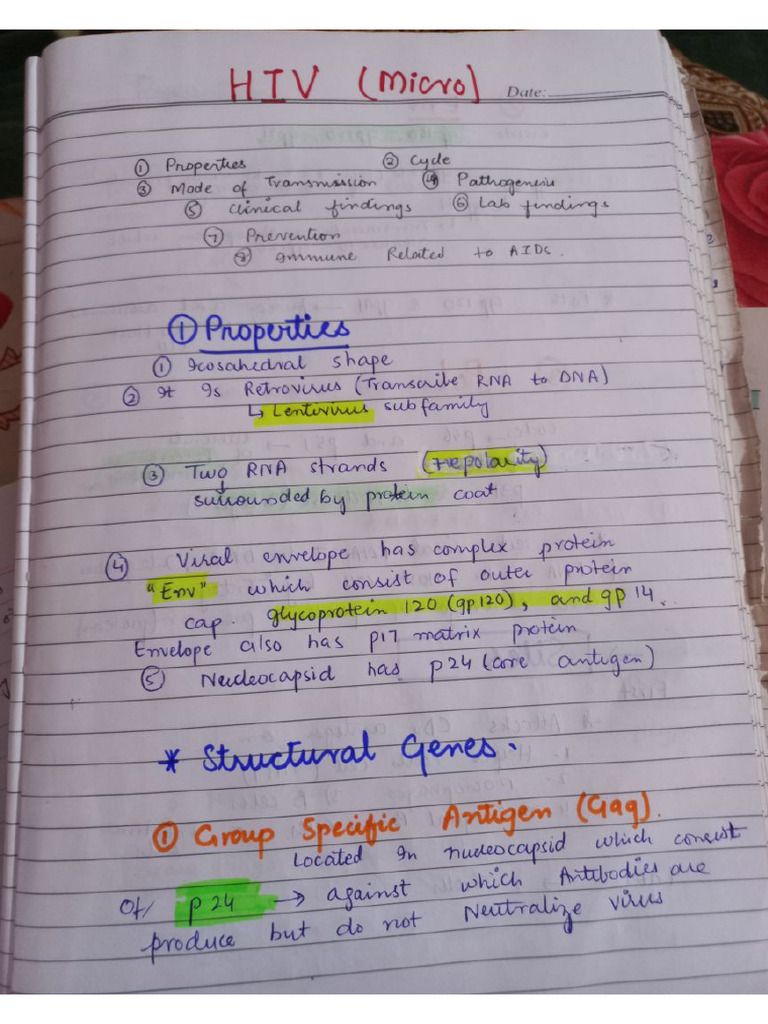 HIV (Micro)
Date:
① Properties ② Cycle
③ Mode of Transmission ④ Pathogenesis
⑤ Clinical findings ⑥ Lab findings
⑦ Prevention
⑧ Immune Related to AIDS.
① Properties
① Icosahedral shape
② It Is Retrovirus (Transcribe RNA to DNA)
↳ Lentivirus subfamily
③ Two RNA strands (+ve polarity)
↓
surrounded by protein coat
④ Viral envelope has complex protein
"Env" which consist of outer protein
cap. glycoprotein 120 (gp120), and gp 14.
Envelope also has p17 matrix protein
⑤ Nucleocapsid has p24 (core antigen)
* Structural Genes.
① Group Specific Antigen (Gag).
Located In nucleocapsid which consist
Of/ p24 → against which Antibodies are
produce but do not Neutralize virus